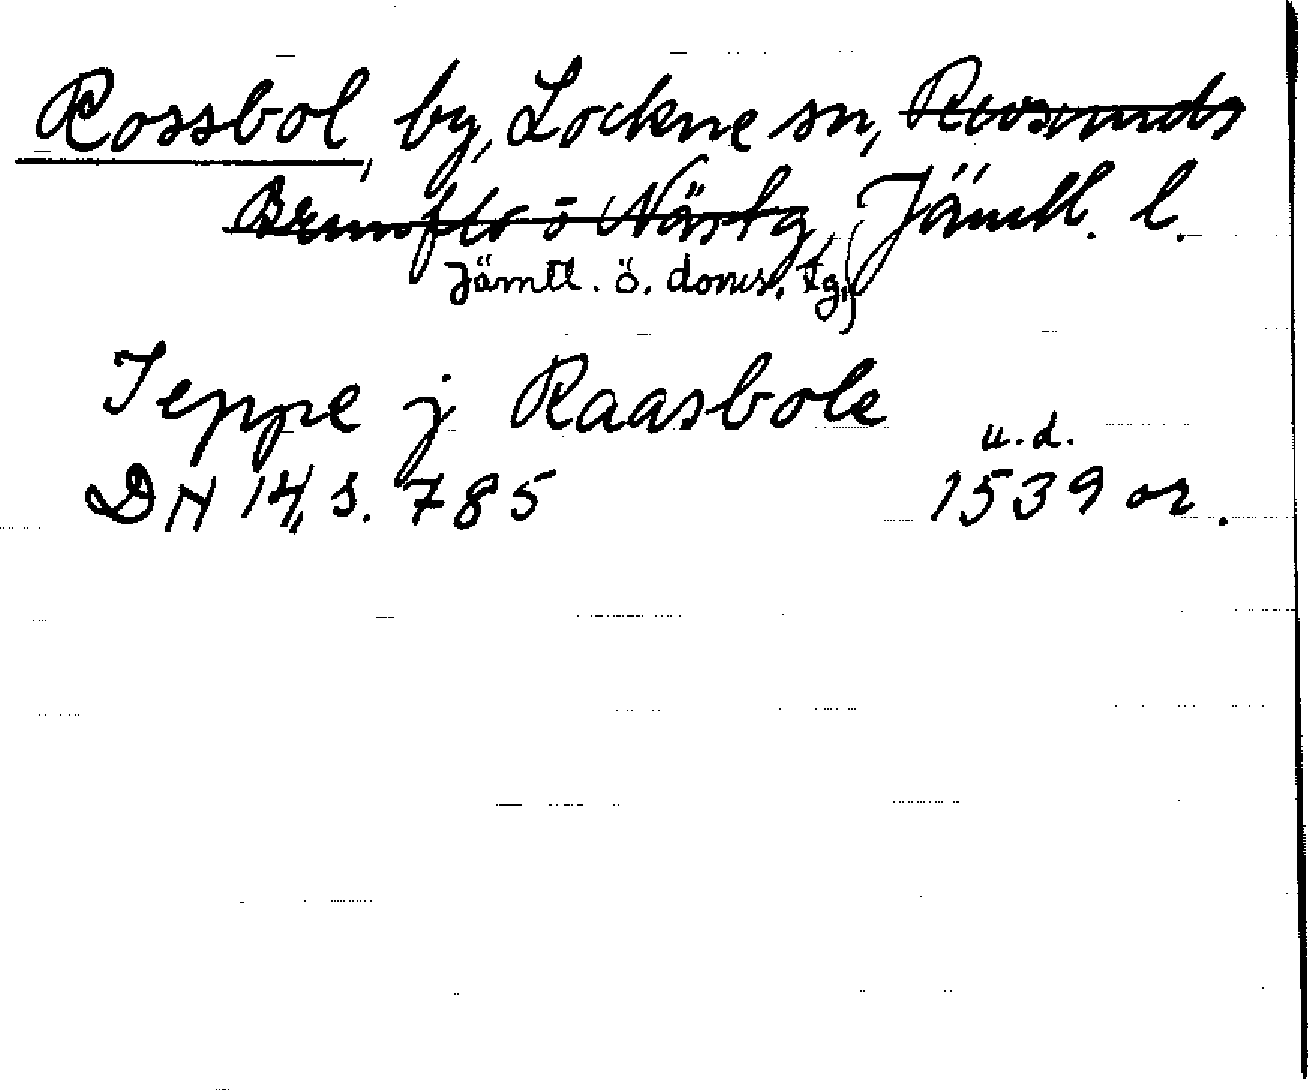 Rossbol, by, Lockne sn, Revsunds
Brunflo o Näs tg, Jämtl. l.
Jämtl. ö. doms. tg,
Jeppe j Raasbole
u.d.
DN 14, s. 785 1539 or.